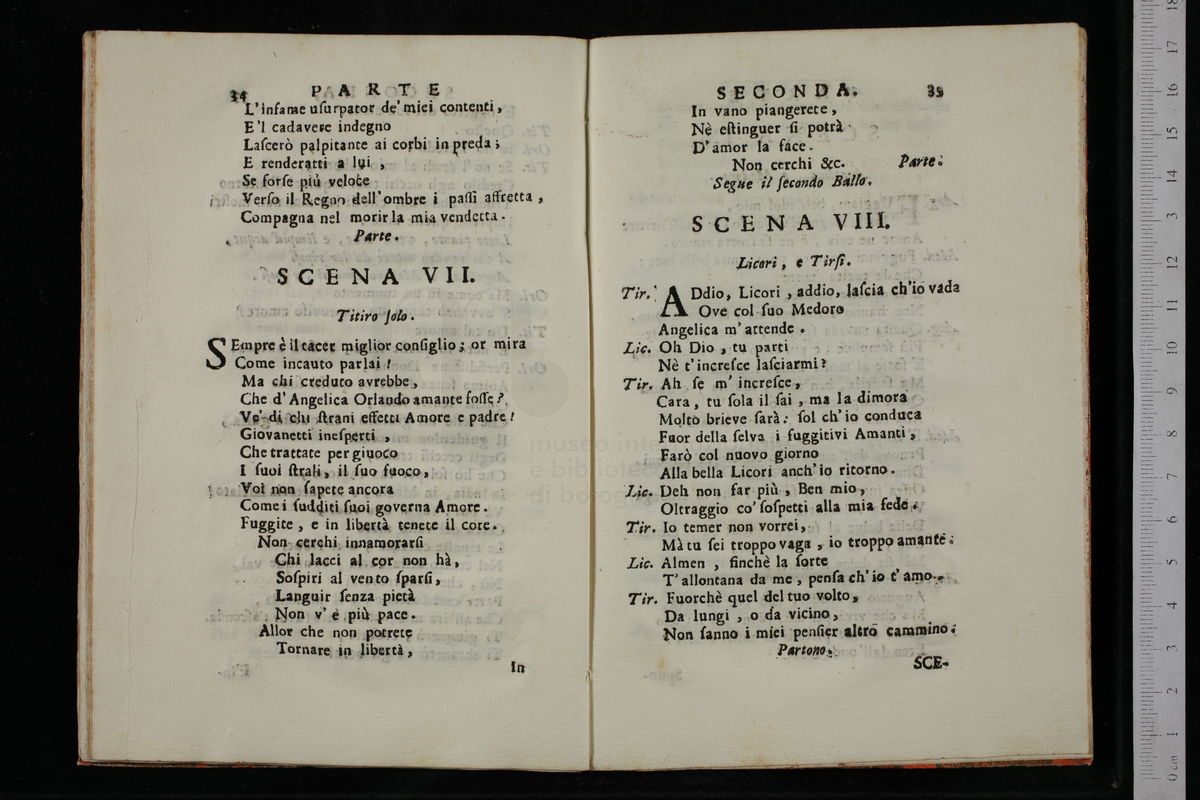 34 PARTE
L'infame uſurpator de' miei contenti,
E'l cadavere indegno
Laſcerò palpitante ai corbi in preda;
E renderatti a lui,
Se forſe più veloce
Verſo il Regno dell'ombre i paſſi affretta,
Compagna nel morir la mia vendetta.
Parte.
SCENA VII.
Titiro ſolo.
SEmpre è il tacer miglior conſiglio; or mira
Come incauto parlai!
Ma chi creduto avrebbe,
Che d'Angelica Orlando amante foſſe?
Ve' di chi ſtrani effetti Amore e padre!
Giovanetti ineſperti,
Che trattate per giuoco
I ſuoi ſtrali, il ſuo fuoco,
Voi non ſapete ancora
Come i ſudditi ſuoi governa Amore.
Fuggite, e in libertà tenete il core.
Non cerchi innamorarſi
Chi lacci al cor non hà,
Soſpiri al vento ſparſi,
Languir ſenza pietà
Non v'è più pace.
Allor che non potrete
Tornare in libertà,
In
SECONDA. 35
In vano piangerete,
Nè eſtinguer ſi potrà
D'amor la face.
Non cerchi &c. Parte.
Segue il ſecondo Ballo.
SCENA VIII.
Licori, e Tirſi.
Tir. ADdio, Licori, addio, laſcia ch'io vada
Ove col ſuo Medoro
Angelica m'attende.
Lic. Oh Dio, tu parti
Nè t'increſce laſciarmi?
Tir. Ah ſe m'increſce,
Cara, tu ſola il ſai, ma la dimora
Molto brieve ſarà: ſol ch'io conduca
Fuor della ſelva i fuggitivi Amanti,
Farò col nuovo giorno
Alla bella Licori anch'io ritorno.
Lic. Deh non far più, Ben mio,
Oltraggio co' ſoſpetti alla mia fede.
Tir. Io temer non vorrei,
Mà tu ſei troppo vaga, io troppo amante.
Lic. Almen, finchè la ſorte
T'allontana da me, penſa ch'io t'amo.
Tir. Fuorchè quel del tuo volto,
Da lungi, o da vicino,
Non ſanno i miei penſier altro cammino.
Partono.
SCE-